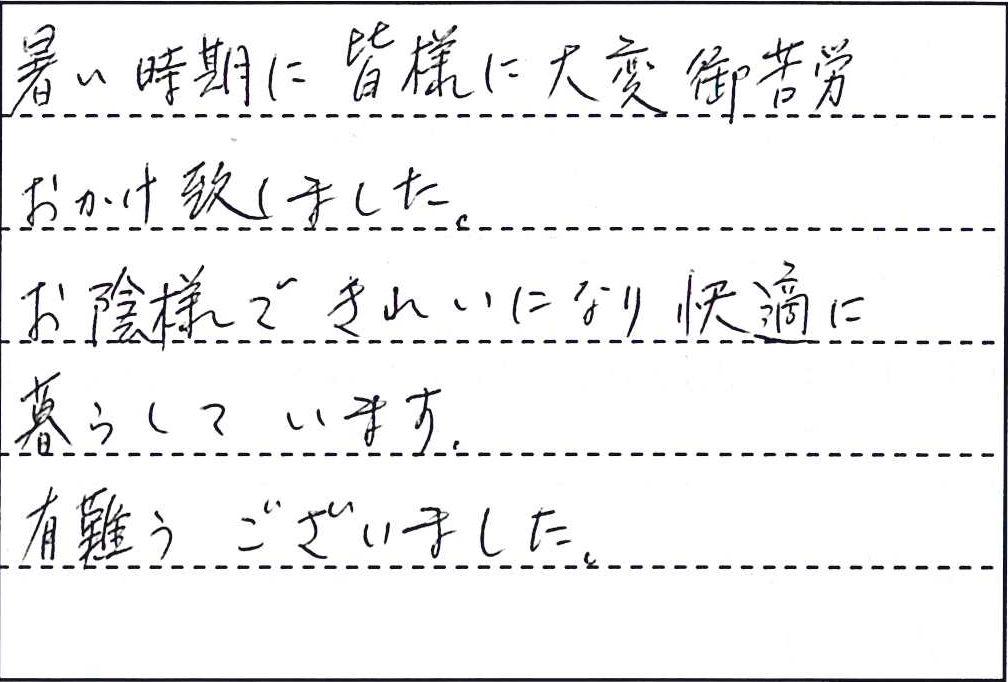 暑い時期に皆様に大変御苦労
おかけ致しました。
お陰様できれいになり快適に
暮らしています。
有難うございました。